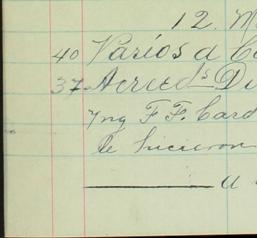 12. M
40 Varios a C
37 Acreeds Di
Ing F. F. Card
le hicieron
a